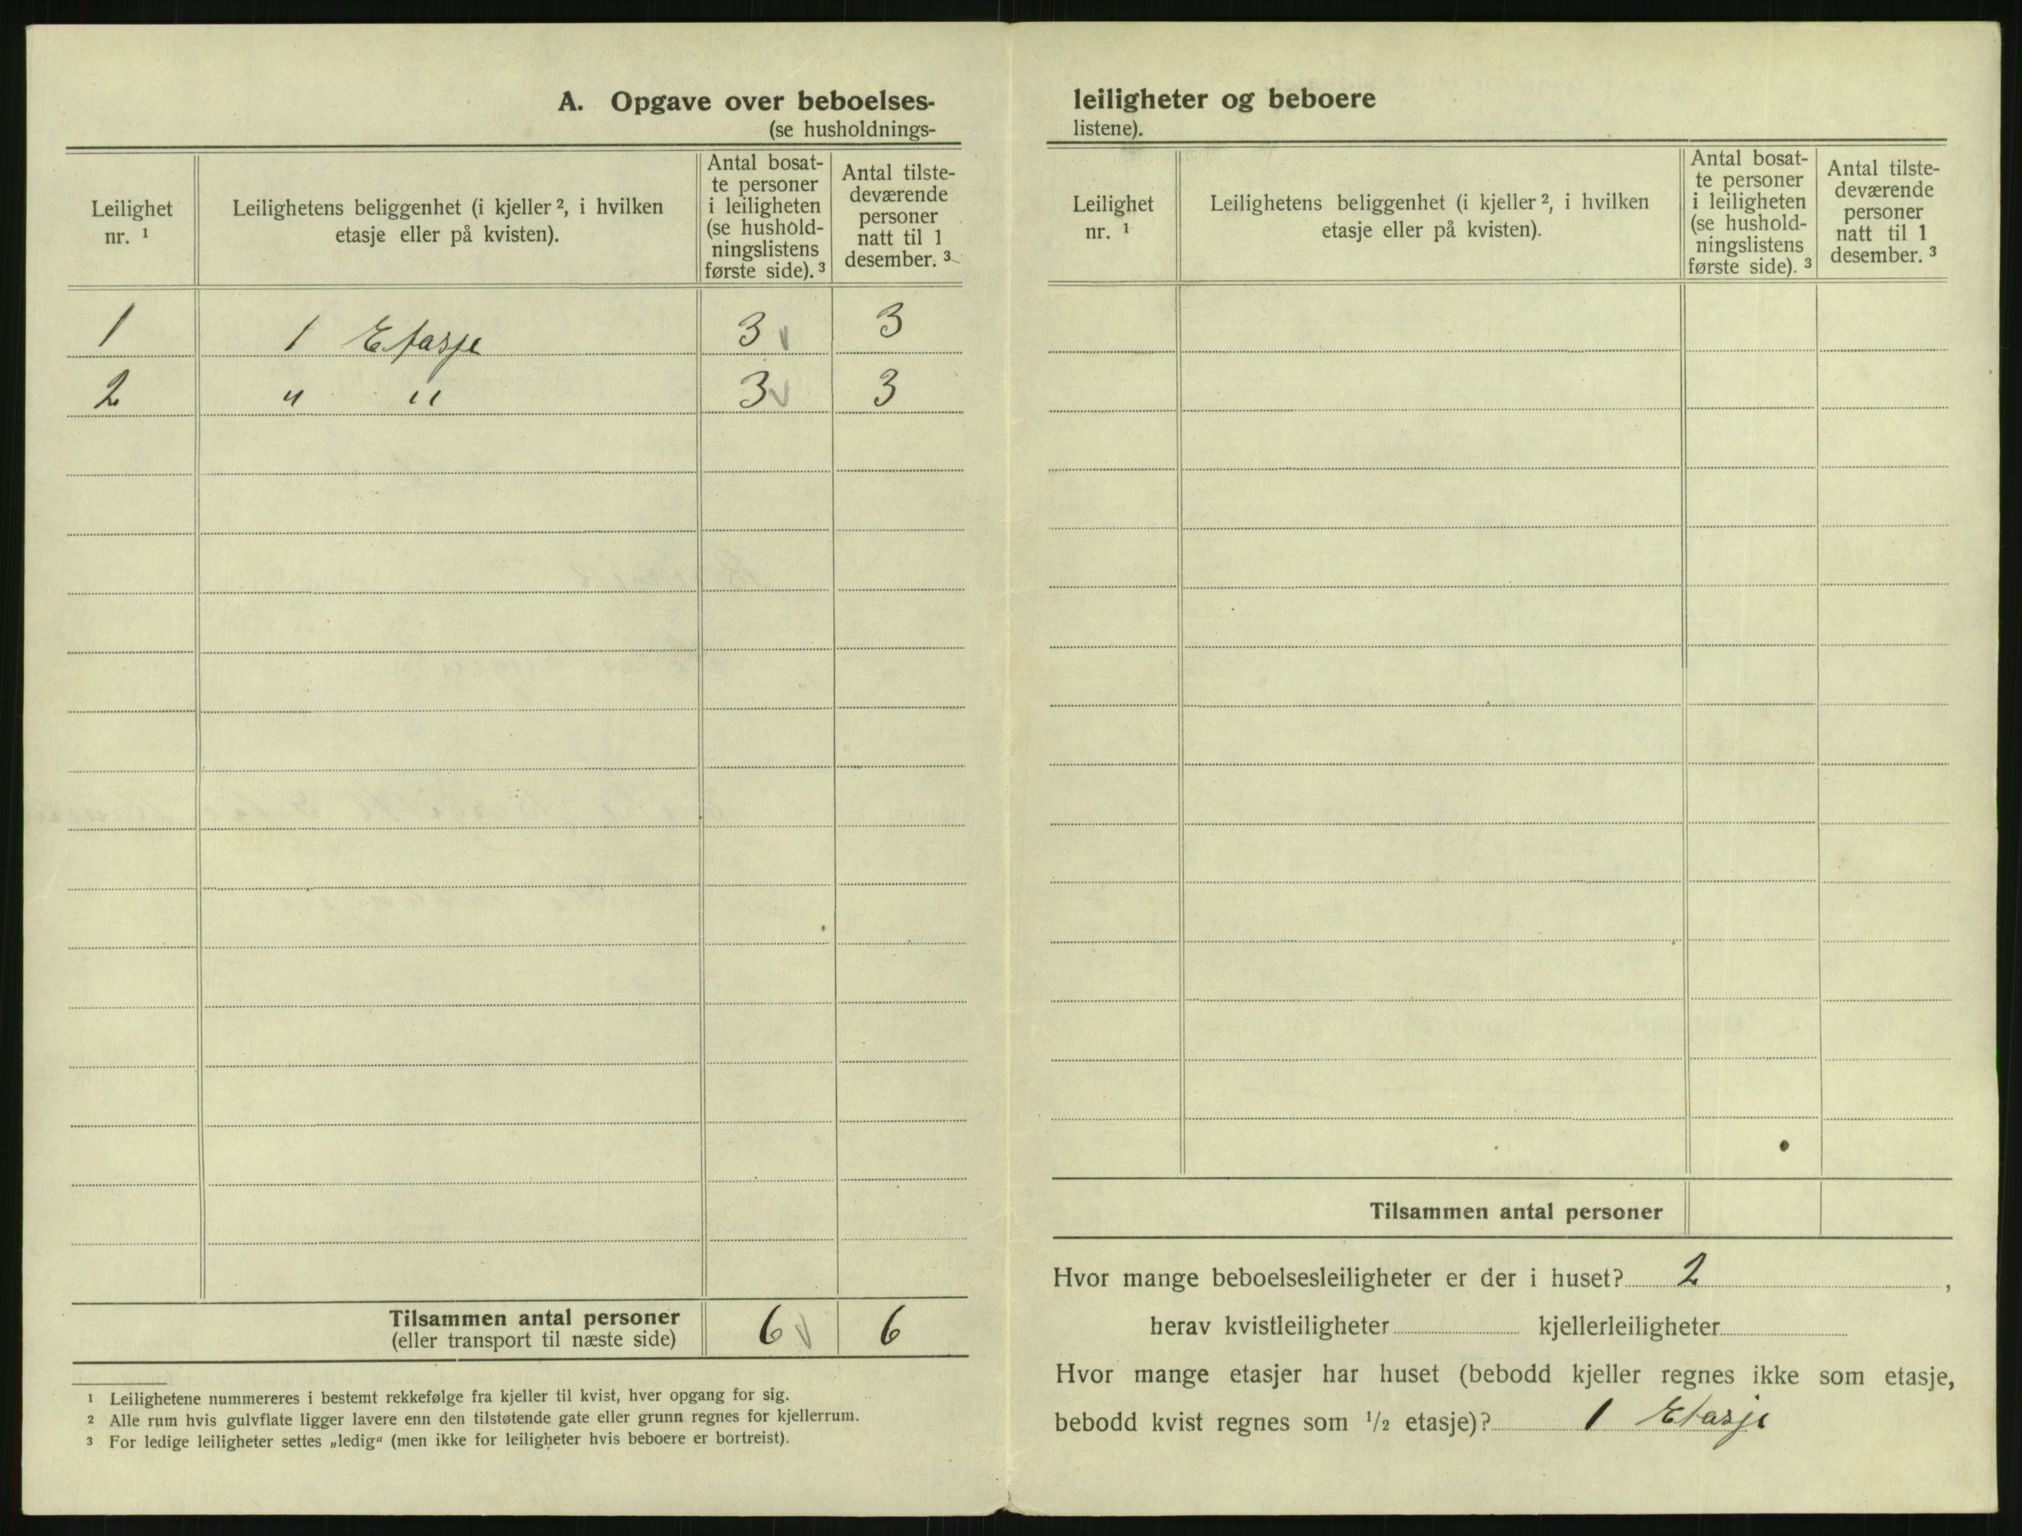 A. Opgave over beboelses-
(se husholdnings-
Leilighet
nr. ¹
Leilighetens beliggenhet (i kjeller ², i hvilken
etasje eller på kvisten).
Antal bosat-
te personer
i leiligheten
(se hushold-
ningslistens
første side). ³
Antal tilste-
deværende
personer
natt til 1
desember. ³
1 1 Etasje 3 3
2 " " 3 3
Tilsammen antal personer
(eller transport til næste side)
6 6
¹ Leilighetene nummereres i bestemt rekkefølge fra kjeller til kvist, hver opgang for sig.
² Alle rum hvis gulvflate ligger lavere enn den tilstøtende gate eller grunn regnes for kjellerrum.
³ For ledige leiligheter settes „ledig“ (men ikke for leiligheter hvis beboere er bortreist).
leiligheter og beboere
listene).
Leilighet
nr. ¹
Leilighetens beliggenhet (i kjeller ², i hvilken
etasje eller på kvisten).
Antal bosat-
te personer
i leiligheten
(se hushold-
ningslistens
første side). ³
Antal tilste-
deværende
personer
natt til 1
desember. ³
Tilsammen antal personer
Hvor mange beboelsesleiligheter er der i huset? 2 ,
herav kvistleiligheter kjellerleiligheter
Hvor mange etasjer har huset (bebodd kjeller regnes ikke som etasje,
bebodd kvist regnes som ¹/₂ etasje)? 1 Etasje